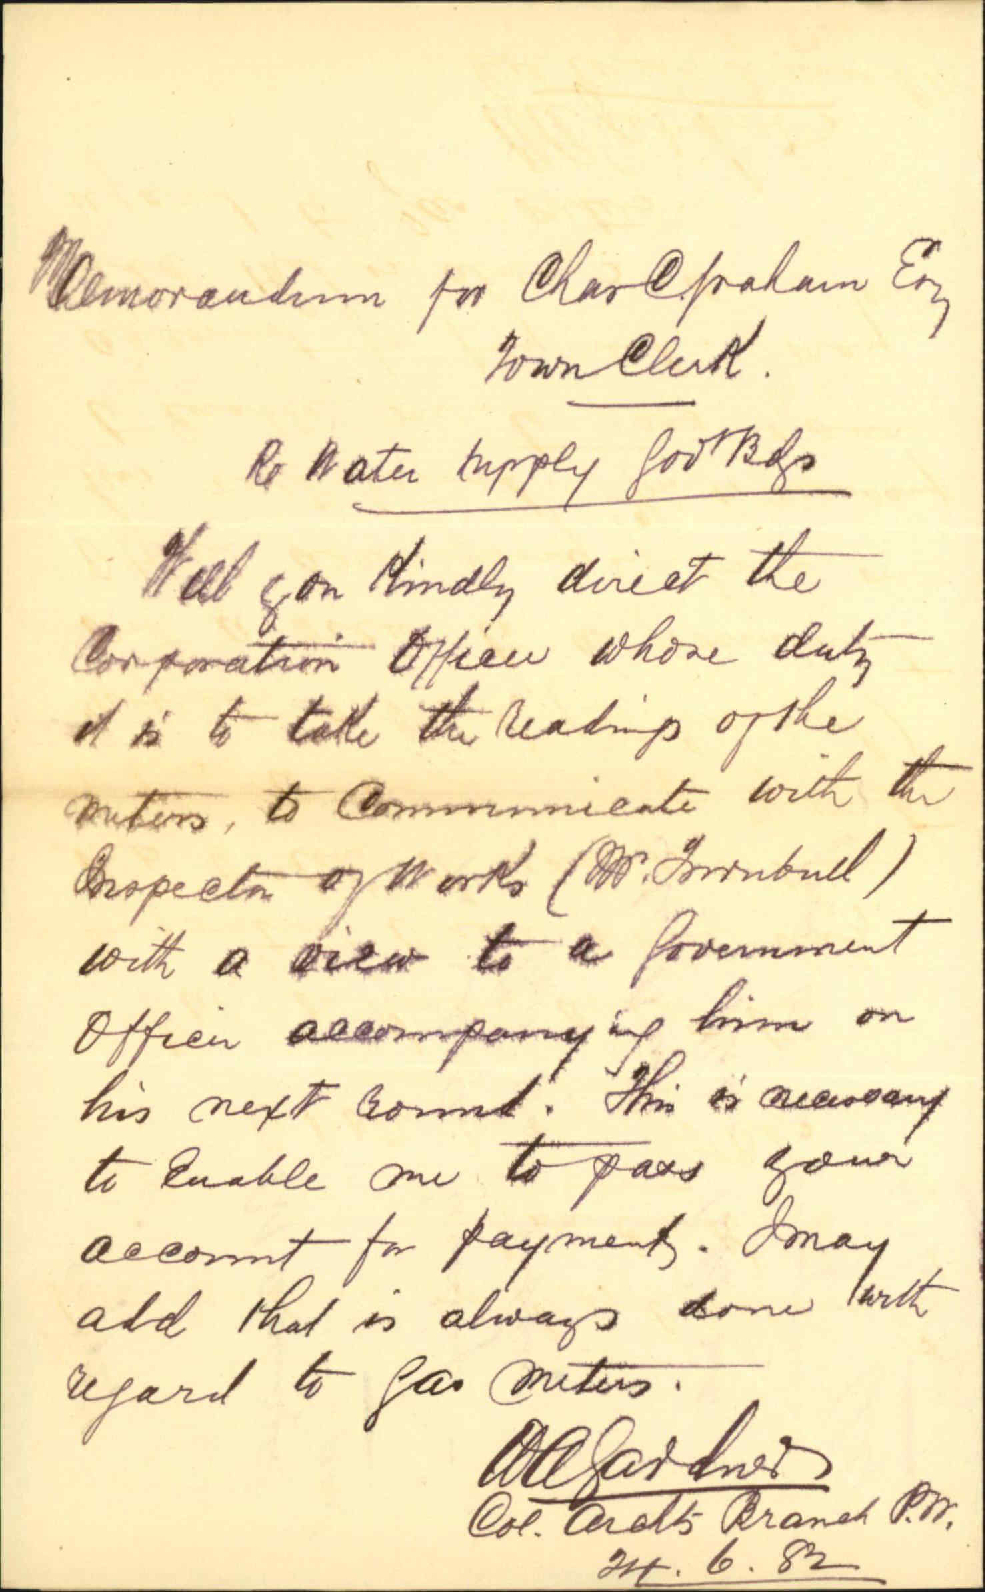 Memorandum for Chas C. Graham Esq
Town Clerk.
Re Water Supply Govt Bdgs
Will you Kindly direct the
Corporation Officer whose duty
it is to take the readings of the
meters, to Communicate with the
Inspector of Works (Mr. Turnbull)
with a view to a Government
Officer accompanying him on
his next round. This is necessary
to Enable me to pass your
account for payment. I may
add that is always done with
regard to Gas Meters.
Gardner
Col. Archts Branch P.W.
24. 6. 82